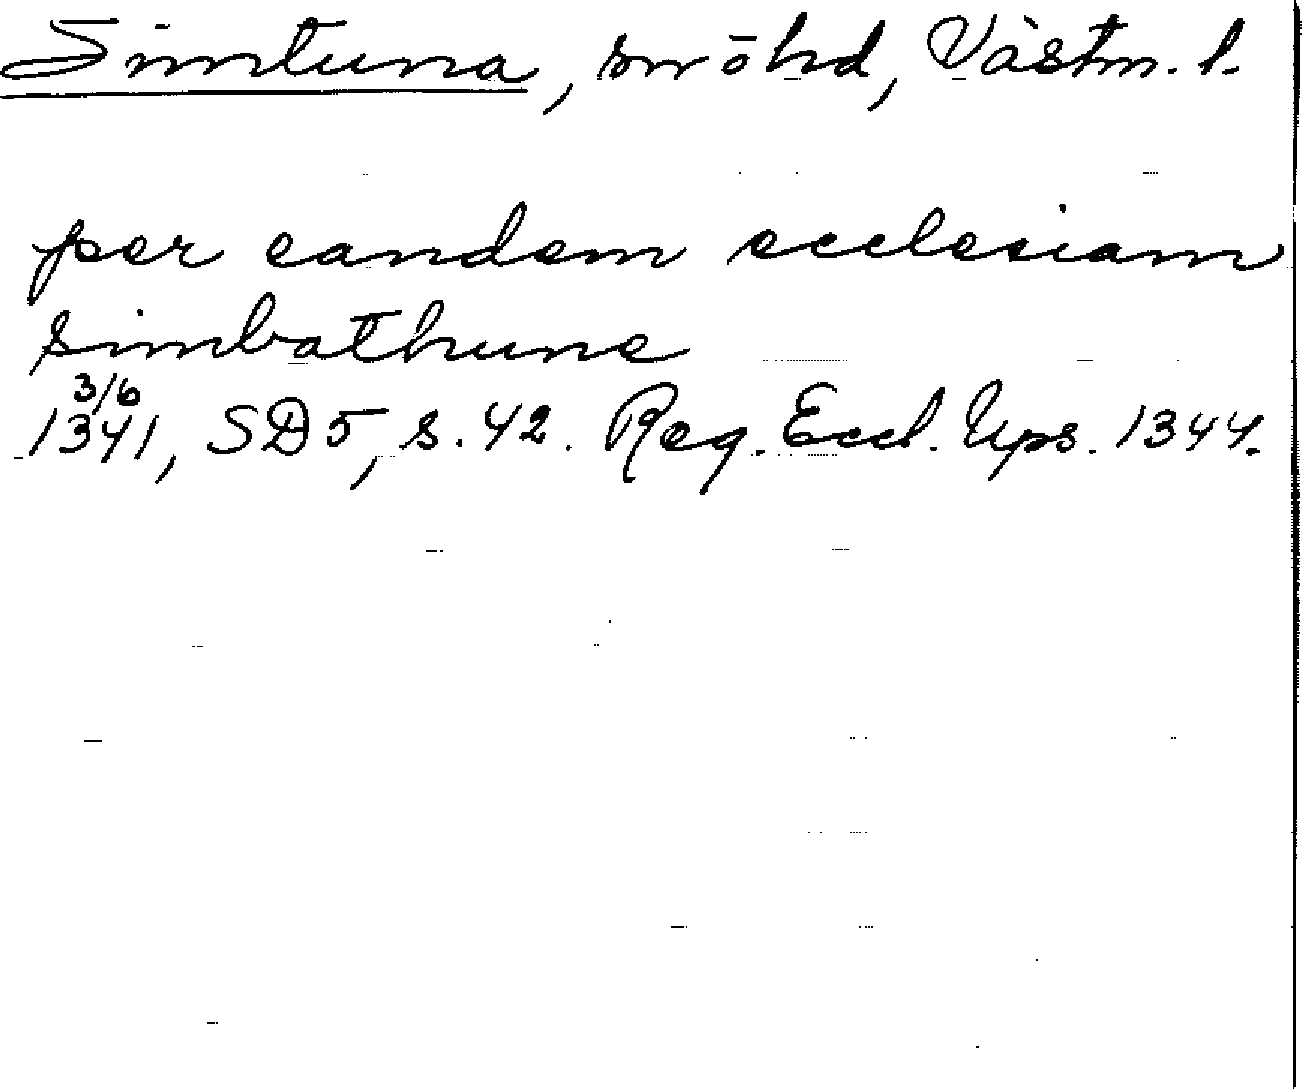 Simtuna, sn o hd, Västm. l.
per eandem ecclesiam
simbathune
3/6
1341, SD 5, s. 42. Reg. Eccl. Ups. 1344.